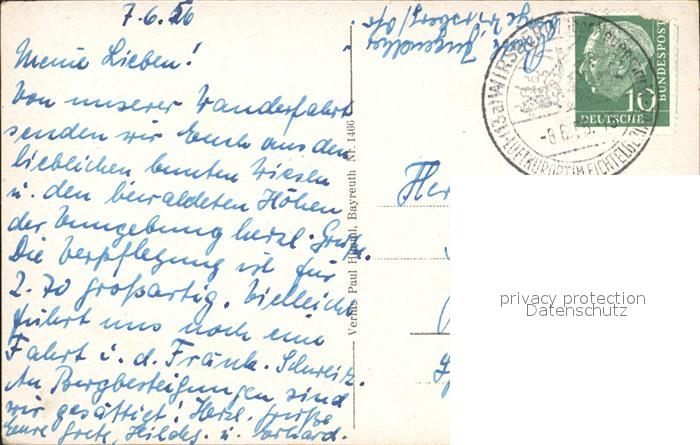 7.6.56
Meine Lieben!
Von unserer Wanderfahrt
senden wir Euch aus den
lieblichen bunten Wiesen
u. den bewaldeten Höhen
der Umgebung herzl. Grüße.
Die Verpflegung ist für
2.70 großartig. Vielleicht
führt uns noch eine
Fahrt i. d. Fränk. Schweiz.
An Bergbesteigungen sind
wir gesättigt! Herzl. Grüße
Eure Grete, Hildeg. u. Erhard.
Verlag Paul Himml, Bayreuth Nr. 1466
WIRSBERG
LUFTKURORT IM FICHTELGEBIRGE
-8.6.
10
DEUTSCHE
BUNDESPOST
Her
privacy protection
Datenschutz